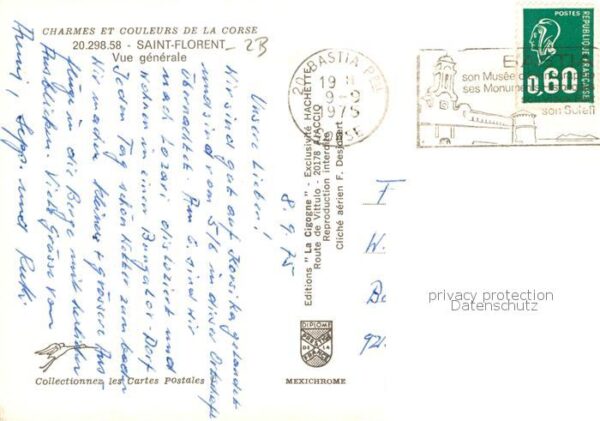 CHARMES ET COULEURS DE LA CORSE
20.298.58 - SAINT-FLORENT - 2B
Vue générale
8.9.75
Unsere Lieben!
Wir sind gut auf Korsika gelandet
und sind vom 5/6 in dieser Ortschaft
übernachtet. Am 6. sind wir
nach Lozari disloziert und
wohnen in einem Bungalow-Dorf
Jeden Tag schön Wetter zum baden
Wir machen kleinere + grössere Aus-
flüge in die Berge mit herrlichen
Ausblicken. Viele Grüsse von
Sepp und Ruth.
Editions "La Cigogne" - Exclusivité HACHETTE
Route de Vittulo - 20178 AJACCIO
Reproduction interdite
Cliché aérien F. Desjobert
DIPLOME
MEXICHROME
Collectionnez les Cartes Postales
BASTIA
19 H
9-9
1975
son Musée
ses Monume
son Soleil
POSTES
REPUBLIQUE FRANÇAISE
0,60
F
W.
B
92
privacy protection
Datenschutz